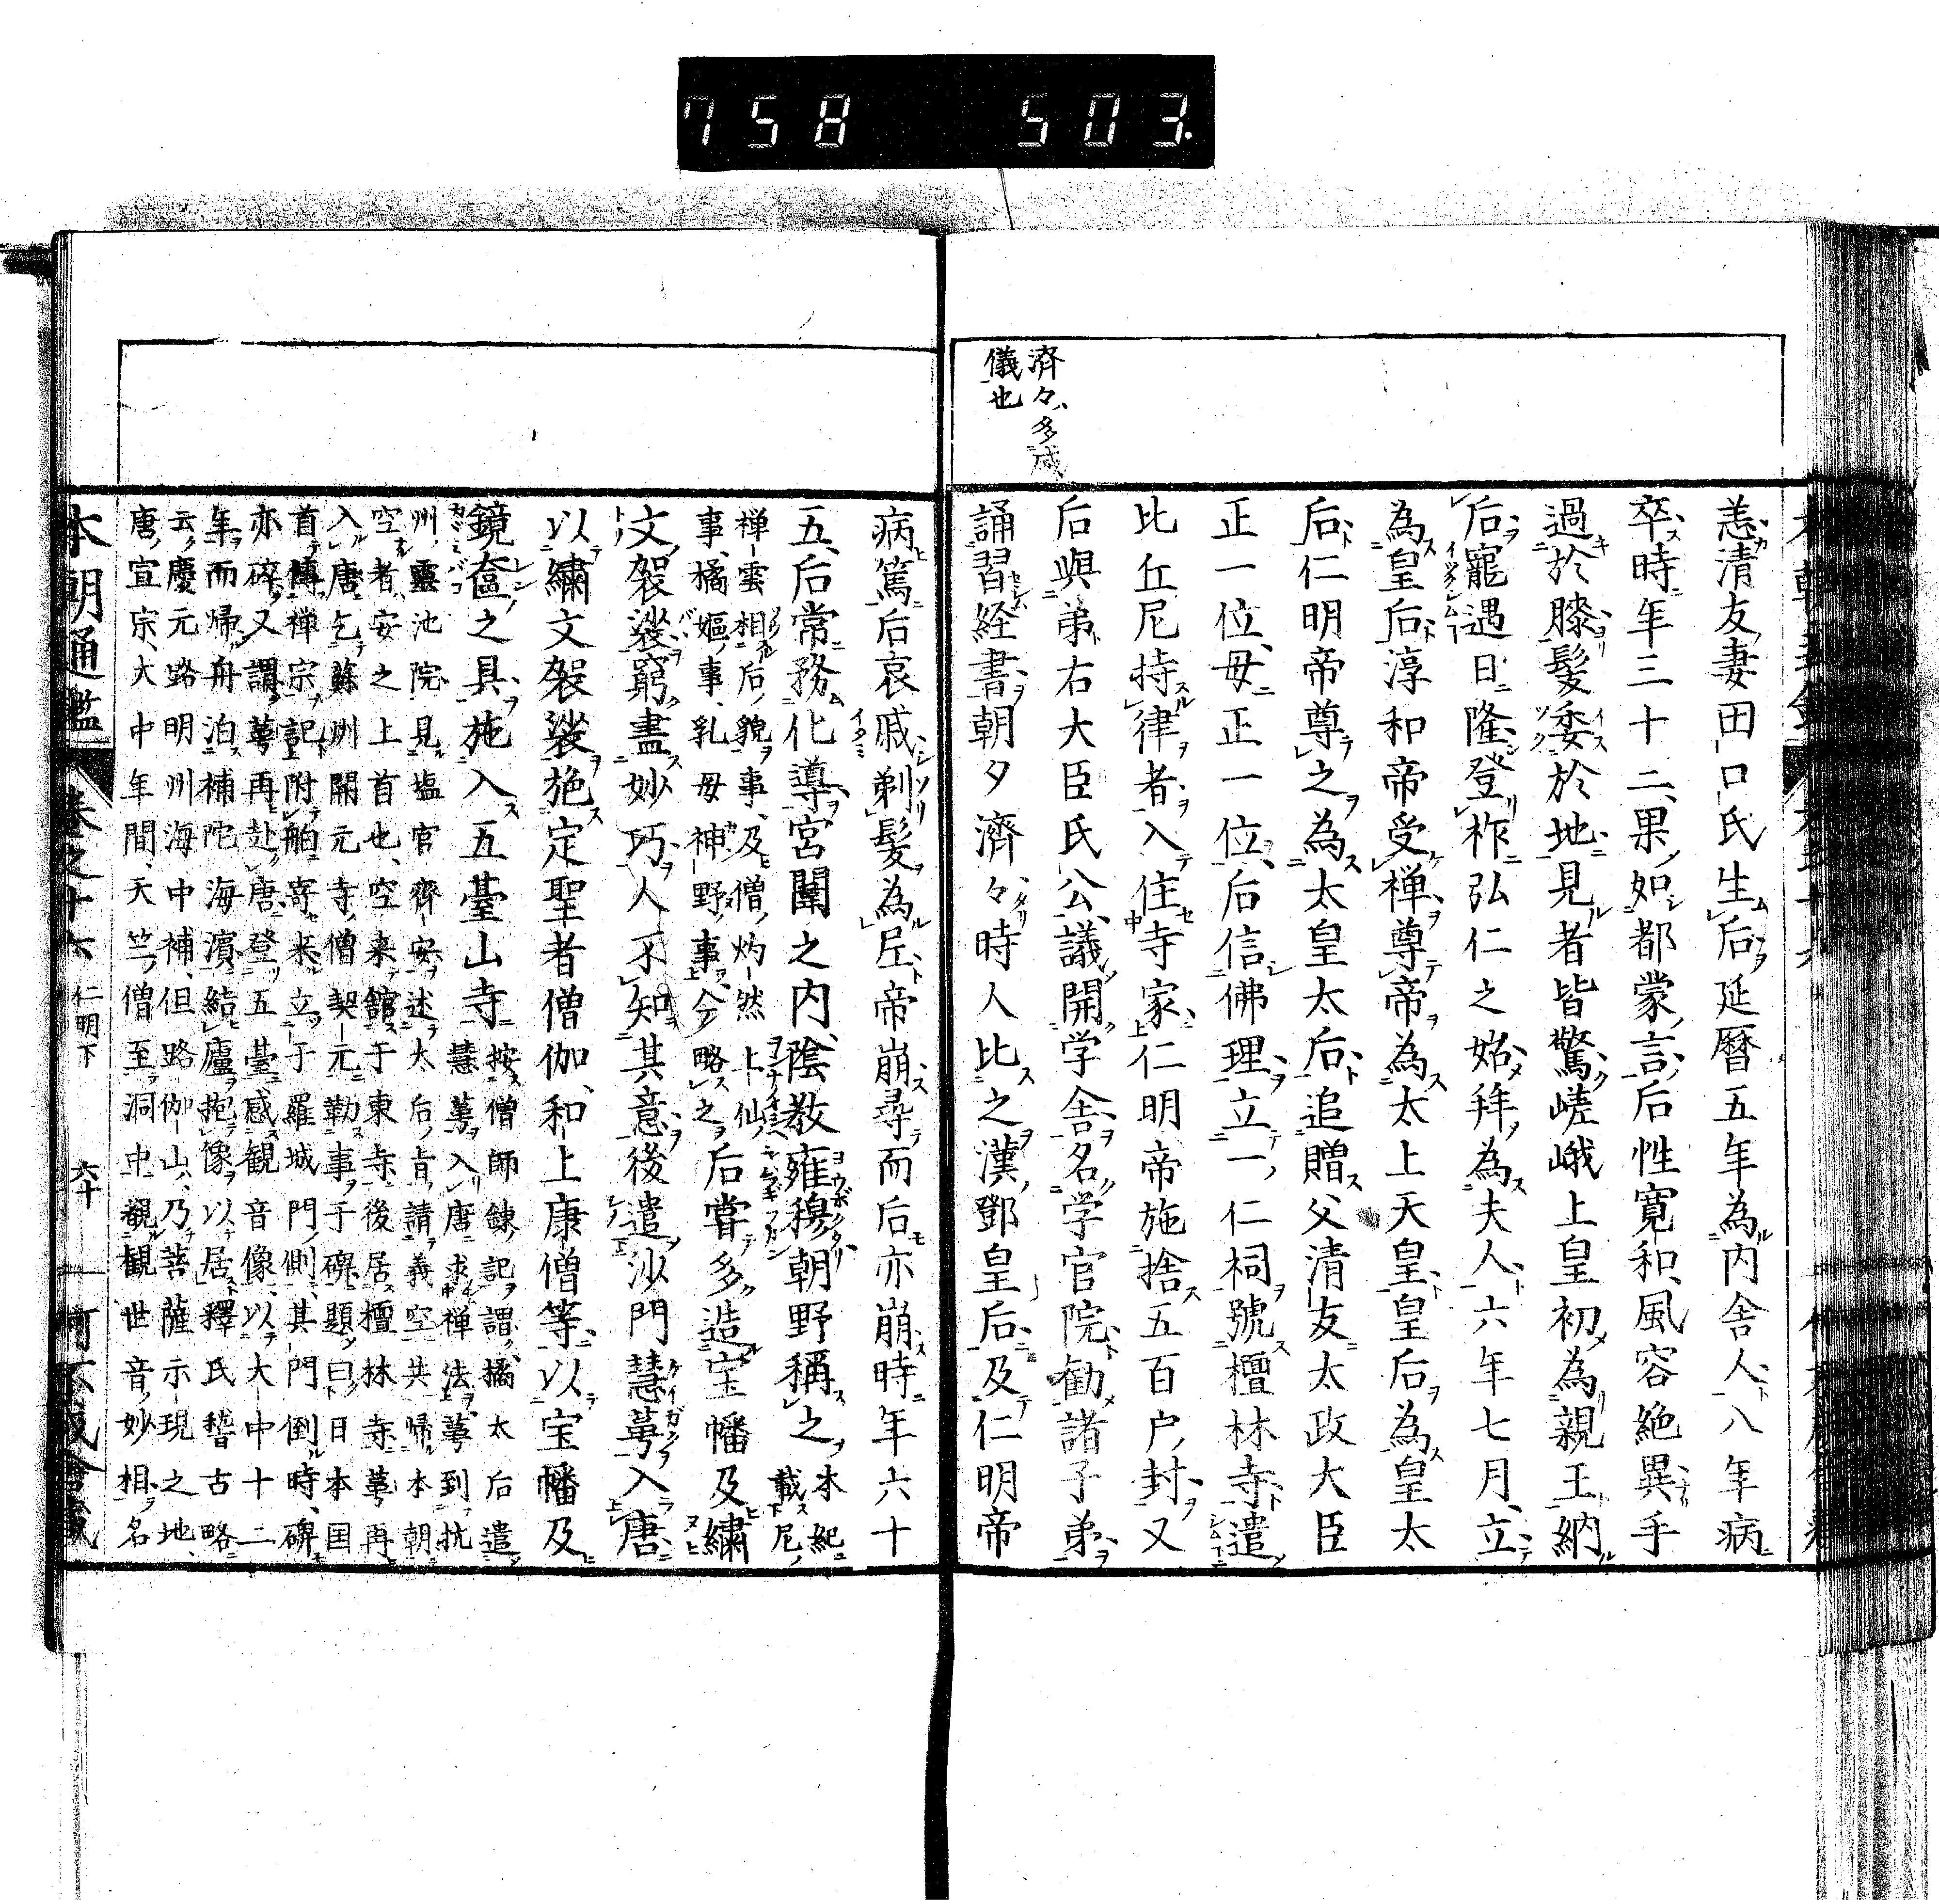 758 503.
済々多威
儀也
恙清友妻田口氏生后延暦五年為内舎人八年病
卒時年三十二果如都蒙言后性寛和風容絶異手
過於膝髪委於地見者皆驚嵯峨上皇初為親王納
后寵遇日隆登祚弘仁之始拜為夫人六年七月立
為皇后淳和帝受禅尊帝為太上天皇皇后為皇太
后仁明帝尊之為太皇太后追贈父清友太政大臣
正一位母正一位后信佛理立一仁祠號檀林寺遣
比丘尼持律者入住寺家仁明帝施捨五百戸封又
后與弟右大臣氏公議開学舎名学官院勧諸子弟
誦習経書朝夕済々時人比之漢鄧皇后及仁明帝
病篤后哀戚剃髪為尼帝崩尋而后亦崩時年六十
五后常務化導宮闈之内陰教雍穆朝野稱之本紀
載尼
禅雲相后貌事及僧灼然上仙
事橘嫗事乳母神野事今略之后嘗多造宝幡及繍
文袈裟窮盡妙巧人不知其意後遣沙門慧萼入唐
以繍文袈裟施定聖者僧伽和上康僧等以宝幡及
鏡奩之具施入五臺山寺按僧師錬記謂橘太后遣
慧萼入唐求禅法萼到抗
州靈池院見塩官齊安述太后旨請義空共帰本朝
空者安之上首也空来館于東寺後居檀林寺萼再
入唐乞蘇州開元寺僧契元勒事于碑題曰日本国
首傳禅宗記附舶寄来立于羅城門側其門倒時碑
亦碎又謂萼再赴唐登五臺感観音像以大中十二
年而帰舟泊補陀海濱結廬抱像以居釋氏稽古略
云慶元路明州海中補但路伽山乃菩薩示現之地
唐宣宗大中年間天竺僧至洞中覩観世音妙相名
本朝通鑑 巻之十六 仁明下 六十